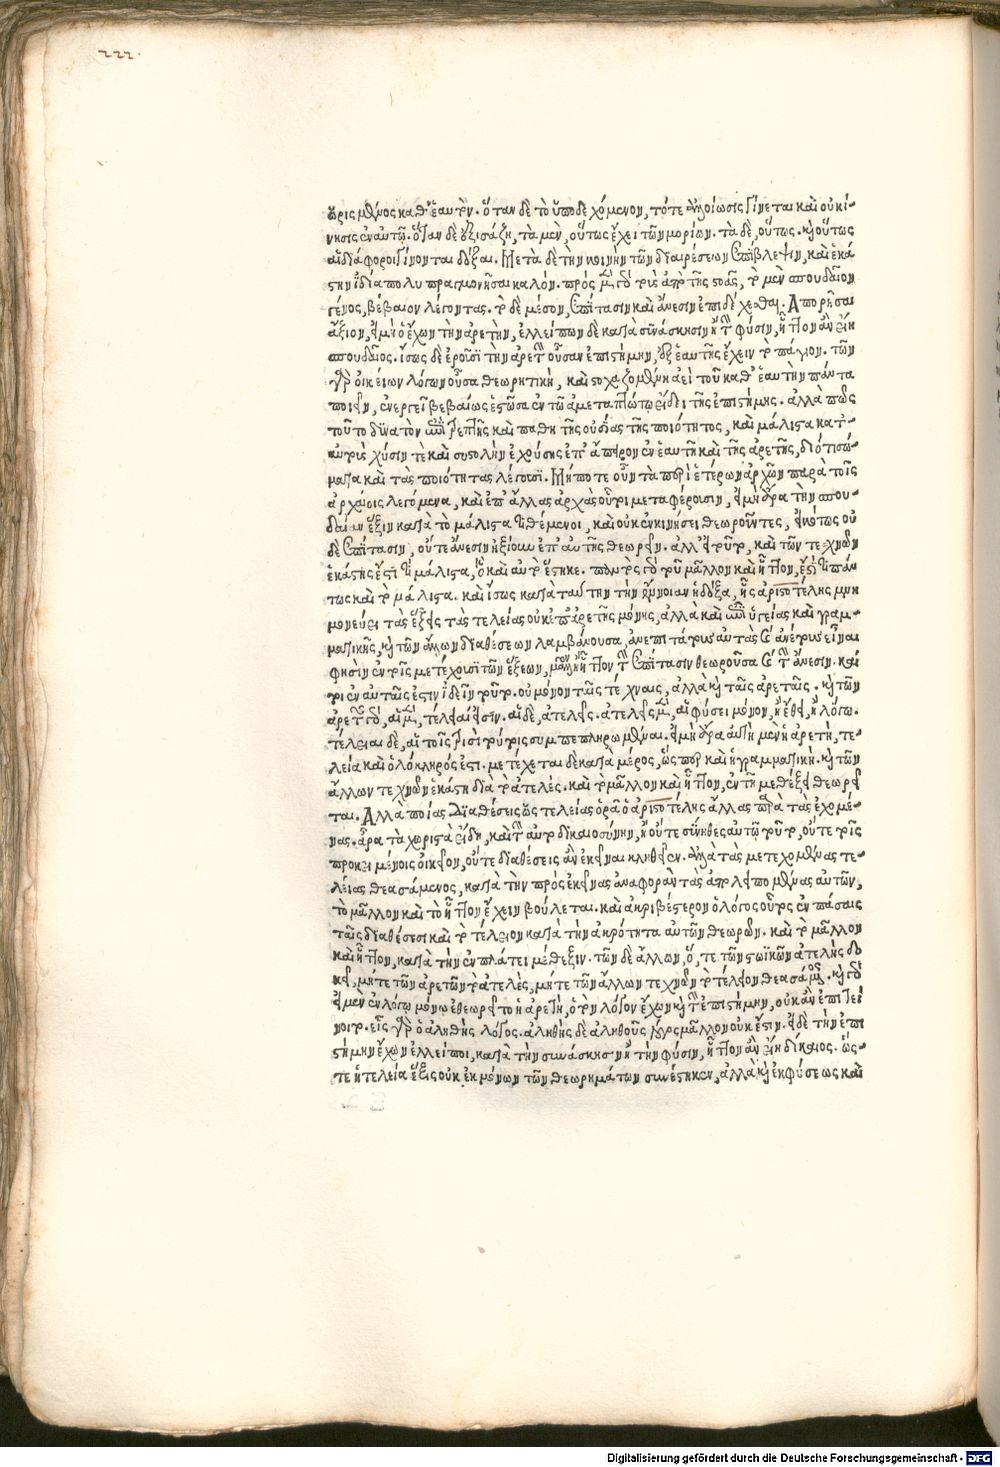 222.
ὡρισμένος καθ' ἑαυτόν. ὅταν δὲ τὸ ὑποδεχόμενον, τότε ἀλλοίωσις γίνεται καὶ οὐ κί-
νησις ἐν αὐτῷ. ὅταν δὲ τὰ μὲν, οὕτως ἔχει τῶν μορίων. τὰ δὲ, οὕτως. καὶ οὕτως
αἱ διάφοροι γίνονται δόξαι. Μετὰ δὲ τὴν κοινὴν τῶν διαιρέσεων ἐπίβλεψιν, καὶ ἑκά
στην ἰδίᾳ πολυπραγμονῆσαι καλόν. πρὸς μὲν γὰρ τοὺς ἀπὸ τῆς στοᾶς, τὸ μὲν σπουδαῖον
γένος, βέβαιον λέγοντας. τὸ δὲ μέσον, ἐπίτασιν καὶ ἄνεσιν ἐπιδέχεσθαι. Ἀπορῆσαι
ἄξιον, εἰ μὴ ὁ ἔχων τὴν ἀρετὴν, ἐλλείπων δὲ κατὰ συνάσκησιν ἢ τὴν φύσιν, ἧττον ἂν εἴη
σπουδαῖος. ἴσως δὲ ἐροῦσι τὴν ἀρετὴν οὖσαν ἐπιστήμην, ἐξ ἑαυτῆς ἔχειν τὸ πάγιον. τῶν
γὰρ οἰκείων λόγων οὖσα θεωρητικὴ, καὶ στοχαζομένη ἀεὶ τοῦ καθ' ἑαυτὴν πάντα
ποιεῖν, ἐνεργεῖ βεβαίως ἑστῶσα ἐν τῷ ἀμεταπτώτῳ εἴδει τῆς ἐπιστήμης. ἀλλὰ πῶς
τοῦτο δύνατον ἐπὶ τρεπτῆς καὶ παθητῆς οὐσίας τῆς ποιότητος, καὶ μάλιστα κατ'
αὐτοὺς χύσιν τε καὶ συστολὴν ἐχούσης ἐπ' ἄπειρον ἐν ἑαυτῇ καὶ τῆς ἀρετῆς, διότι σώ-
ματα καὶ τὰς ποιότητας λέγουσι. Μήποτε οὖν τὰ περὶ ἑτέρων ἀρχῶν παρὰ τοῖς
ἀρχαίοις λεγόμενα, καὶ ἐπ' ἄλλας ἀρχὰς οὗτοι μεταφέρουσιν, εἰ μὴ ἄρα τὴν σπου-
δαίαν ἕξιν κατὰ τὸ μάλιστα τιθέμενοι, καὶ οὐκ ἐν κινήσει θεωροῦντες, εἰκότως οὐ
δὲ ἐπίτασιν, οὔτε ἄνεσιν ἠξίουν ἐπ' αὐτῆς θεωρεῖν. ἀλλ' εἰ τοῦτο, καὶ τῶν τεχνῶν
ἑκάστης ἐστί τι μάλιστα, ὃ καὶ αὐτὸ ἕστηκε. πολλοῖς γὰρ τοῦ μᾶλλον καὶ ἧττον, ἐστὶ πάν
τως καὶ τὸ μάλιστα. καὶ ἴσως κατὰ ταύτην τὴν ἔννοιαν ἡ δόξα, ἧς ἀριστοτέλης μνη
μονεύει τὰς ἕξεις τὰς τελείας οὐκ ἐπ' ἀρετῆς μόνης, ἀλλὰ καὶ ἐπὶ ὑγείας καὶ γραμ-
ματικῆς, καὶ τῶν ἄλλων διαθέσεων λαμβάνουσα, ἀνεπιτάτους αὐτὰς καὶ ἀνέτους εἶναι
φησὶν ἐν τοῖς μετέχουσι τῶν ἕξεων, μᾶλλον καὶ ἧττον τὴν ἐπίτασιν θεωροῦσα καὶ τὴν ἄνεσιν. καί
τοι ἐν αὐταῖς ἐστιν ἰδεῖν τοῦτο. οὐ μόνον ταῖς τέχναις, ἀλλὰ καὶ ταῖς ἀρεταῖς. καὶ τῶν
ἀρετῶν γὰρ, αἱ μὲν, τέλειαί εἰσιν. αἱ δὲ, ἀτελεῖς. ἀτελεῖς μὲν, αἱ φύσει μόνον, ἢ ἔθει, ἢ λόγῳ.
τέλειαι δὲ, αἱ τοῖς τρισὶ τούτοις συμπεπληρωμέναι. εἰ μὴ ἄρα αὐτὴ μὲν ἡ ἀρετὴ, τε-
λεία καὶ ὁλόκληρός ἐστι. μετέχεται δὲ κατὰ μέρος, ὥσπερ καὶ ἡ γραμματικὴ. καὶ τῶν
ἄλλων τεχνῶν ἑκάστη διὰ τὸ ἀτελές. καὶ τὸ μᾶλλον καὶ ἧττον, ἐν τῇ μεθέξει θεωρεῖ
ται. Ἀλλὰ ποίας διαθέσεις ὡς τελείας ὁρᾷ ὁ ἀριστοτέλης ἄλλας παρὰ τὰς ἐχομέ-
νας. ἆρα τὰ χωριστὰ εἴδη, καὶ τὴν αὐτοδικαιοσύνην, ἢ οὔτε σύνηθες αὐτῷ τοῦτο, οὔτε τοῖς
προκειμένοις οἰκεῖον, οὔτε διαθέσεις ἂν ἐκεῖναι κληθεῖεν. ἀλλὰ τὰς μετεχομένας τε-
λείας θεασάμενος, κατὰ τὴν πρὸς ἐκείνας ἀναφορὰν τὰς ἀπολειπομένας αὐτῶν,
τὸ μᾶλλον καὶ τὸ ἧττον ἔχειν βούλεται. καὶ ἀκριβέστερον ὁ λόγος οὗτος ἐν πάσαις
ταῖς διαθέσεσι καὶ τὸ τέλειον κατὰ τὴν ἀκρότητα αὐτῶν θεωρῶν. καὶ τὸ μᾶλλον
καὶ ἧττον, κατὰ τὴν ἐν πλάτει μέθεξιν. τῶν δὲ ἄλλων, ὅ, τε τῶν στωϊκῶν ἀτελὴς δο
κεῖ, μήτε τῶν ἀρετῶν τὸ ἀτελὲς, μήτε τῶν ἄλλων τεχνῶν τὸ τέλειον θεασάμενος. καὶ γὰρ
εἰ μὲν ἐν λόγῳ μόνῳ ἐθεωρεῖτο ἡ ἀρετὴ, ὁ τὸν λόγον ἔχων καὶ τὴν ἐπιστήμην, οὐκ ἂν ἐπιτεί
νοιτο. εἷς γὰρ ὁ ἀληθὴς λόγος. ἀληθὴς δὲ ἀληθοῦς λόγος μᾶλλον οὐκ ἔστιν. εἰ δὲ τὴν ἐπι
στήμην ἔχων ἐλλείποι, κατὰ τὴν συνάσκησιν ἢ τὴν φύσιν, ἧττον ἂν εἴη δίκαιος. ὥς-
τε ἡ τελεία ἕξις οὐκ ἐκ μόνων τῶν θεωρημάτων συνέστηκεν, ἀλλὰ καὶ ἐκ φύσεως καὶ
Digitalisierung gefördert durch die Deutsche Forschungsgemeinschaft - DFG